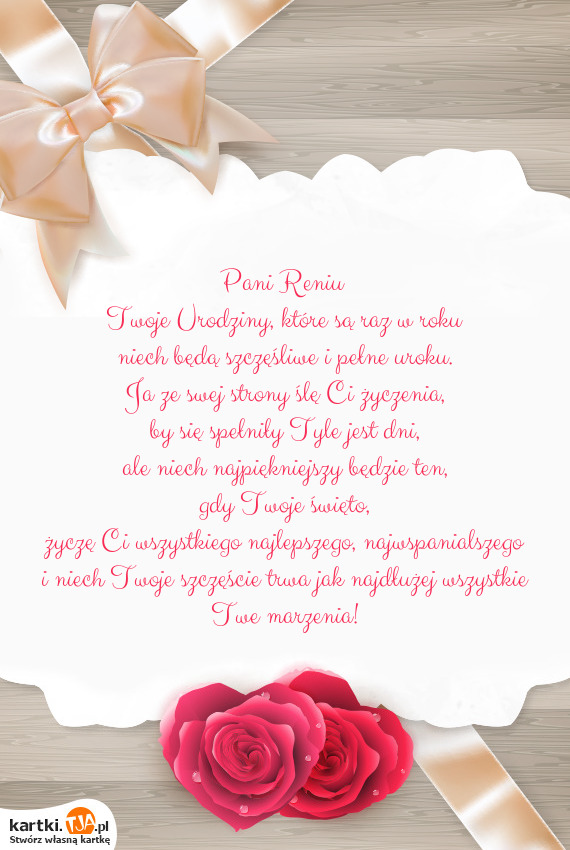 Pani Reniu
Twoje Urodziny, które są raz w roku
niech będą szczęśliwe i pełne uroku.
Ja ze swej strony ślę Ci życzenia,
by się spełniły Tyle jest dni,
ale niech najpiękniejszy będzie ten,
gdy Twoje święto,
życzę Ci wszystkiego najlepszego, najwspanialszego
i niech Twoje szczęście trwa jak najdłużej wszystkie
Twe marzenia!
kartki.TJA.pl
Stwórz własną kartkę